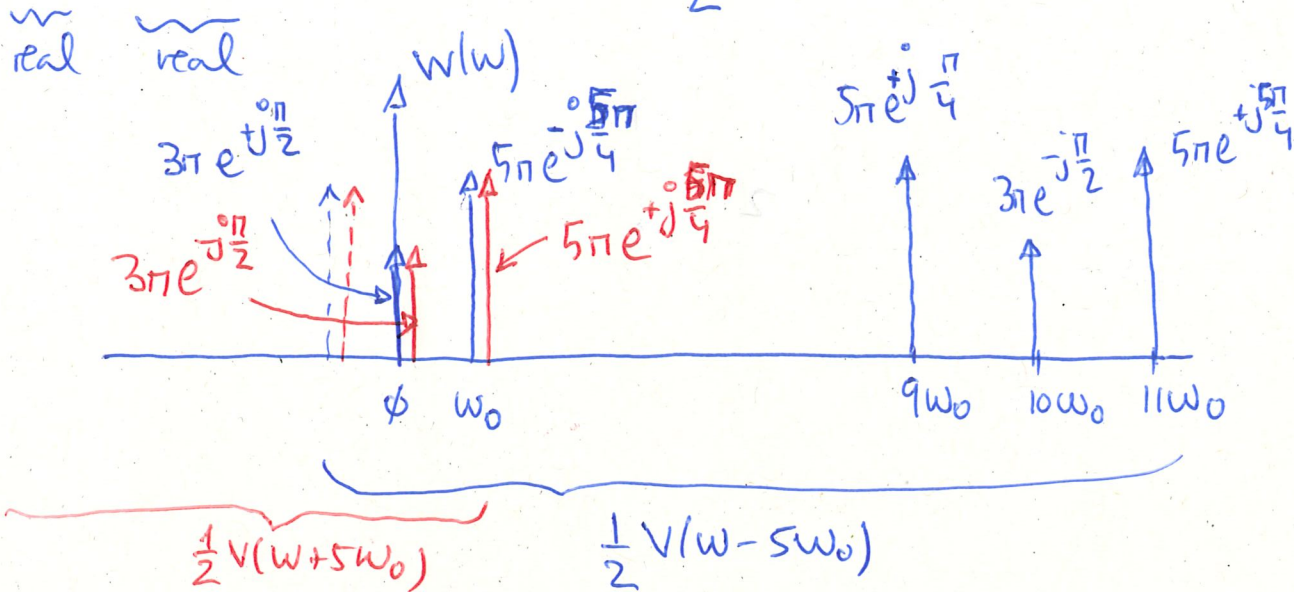 real real
W(ω)
3π e^{+jπ/2}
5π e^{-j5π/4}
5π e^{+jπ/4}
3π e^{-jπ/2}
5π e^{+j5π/4}
3π e^{-jπ/2}
5π e^{+j5π/4}
∅ ω₀ 9ω₀ 10ω₀ 11ω₀
½ V(ω+5ω₀) ½ V(ω-5ω₀)